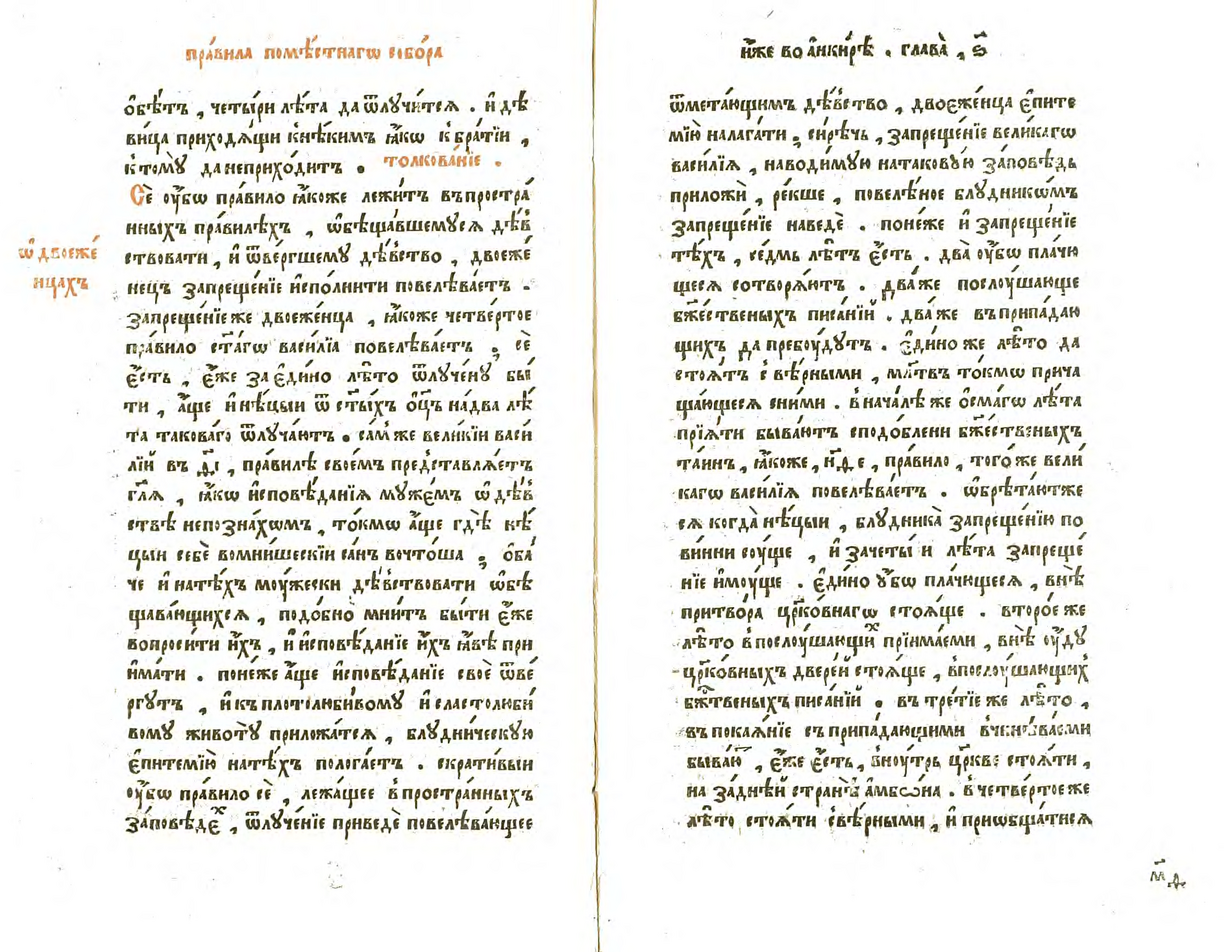 пра́вила помѣ́стнагѡ собо́ра
ѻ҆бѣ́тъ , четы́ри лѣ́та да ѿлꙋчи́тсѧ . и҆ дѣ
ви́ца приходѧ́щи кнѣ́кимъ ꙗ҆́кѡ к бра́тїи ,
ктомꙋ̀ данеприхо́дитъ . толкова́нїе .
Сѐ ѹ҆́бѡ пра́вило ꙗ҆́коже лежи́тъ въпростра́
нныхъ пра́вилѣхъ , ѡ҆бѣща́вшемꙋсѧ дѣ́в
ствовати , и҆ ѿве́ргшемꙋ дѣ́вство , двоеже́
ѡ҆ двоеже́
нцахъ
нецъ запреще́нїе и҆спо́лнити повелѣва́етъ .
запреще́нїеже двоеже́нца , ꙗ҆́коже четве́ртое
пра́вило ст҃а́гѡ васи́лїа повелѣва́етъ , сѐ
є҆́сть , є҆́же за є҆ди́но лѣ́то ѿлꙋче́нꙋ бы́
ти , а҆́ще и҆ нѣ́цыи ѿ ст҃ы́хъ ѻ҆ц҃ъ на́два лѣ́
та такова́го ѿлꙋча́ютъ . са́м же вели́кїи васи́
лїй въ д҃і , пра́вилѣ свое́мъ представлѧ́етъ
гл҃ѧ , ꙗ҆́кѡ и҆сповѣ́данїѧ мꙋже́мъ ѡ҆ дѣ́в
ствѣ непозна́хомъ , то́кмѡ а҆́ще гдѣ̀ нѣ́
цыи себѐ вомни́шескїи са́нъ вочто́ша , ѻ҆ба́
че и҆ натѣ́хъ моу́жески дѣ́вствовати ѡ҆бѣ
щава́ющихсѧ , подо́бно мни́тъ бы́ти є҆́же
вопроси́ти и҆́хъ , и҆ и҆сповѣ́данїе и҆́хъ ꙗ҆́вѣ при
и҆ма́ти . поне́же а҆́ще и҆сповѣ́данїе своѐ ѿве́
ргꙋтъ , и҆ къ плотолюби́вомꙋ и҆ сластолюби́
вомꙋ животꙋ̀ приложа́тсѧ , блꙋдни́ческꙋю
є҆питемїю натѣ́хъ полога́етъ . скрати́выи
ѹ҆́бѡ пра́вило сѐ , лежа́щее в простра́нныхъ
за́повѣдєⷯ , ѿлꙋче́нїе приведѐ повелѣва́ющее
и҆́же во а҆нки́рѣ . глава̀ , ѕ҃
ѿмета́ющимъ дѣ́вство , двоеже́нца є҆пите
мїю налага́ти , си́рѣчь , запреще́нїе вели́кагѡ
васи́лїѧ , наводи́мꙋю натаковꙋ́ю за́повѣдь
приложѝ , ре́кше , повелѣ́ное блꙋдникѡ́мъ
запреще́нїе наведѐ . поне́же и҆ запреще́нїе
тѣ́хъ , се́дмь лѣ́тъ є҆́сть . два̀ ѹ҆́бѡ пла́чю
щесѧ сотворѧ́ютъ . два́ же послоу́шающе
бж҃е́ственыхъ писа́нїй . два́ же въприпа́даю
щихъ да пребоу́дꙋтъ . є҆ди́но же лѣ́то да
стоѧ́тъ с вѣ́рными , мл҃твъ то́кмѡ прича
ща́ющесѧ сни́ми . в нача́лѣ же ѻ҆сма́гѡ лѣ́та
прїѧ́ти быва́ютъ сподо́блени бж҃е́ственыхъ
та́инъ , ꙗ҆́коже , н҃ѳ е , пра́вило , того́ же вели́
кагѡ васи́лїѧ повелѣва́етъ . ѡ҆брѣта́ютже
сѧ когда̀ нѣ́цыи , блꙋдника̀ запреще́нїю по
ви́нни соу́ще , и҆ зачеты́ и лѣ́та запреще́
нїе и҆моу́ще . є҆ди́но ѹ҆́бѡ пла́чющесѧ , внѣ̀
притво́ра цр҃ко́внагѡ стоѧ́ще . второ́е же
лѣ́то в послоу́шающиⷯ прїима́еми , внѣ̀ ѹ҆́дꙋ
цр҃ко́вныхъ двере́й стоѧ́ще , впослоу́шающих
бж҃твеныхъ писа́нїй . въ тре́тїе же лѣ́то ,
въ покаѧ́нїе съ припа́дающими вчинѧ́ваеми
быва́ю , є҆́же є҆́сть , вноу́трь цр҃кве стоѧ́ти ,
на за́днѣй странѣ̀ а҆мбѡ́на . в четве́ртое же
лѣ́то стоѧ́ти с вѣ́рными , и҆ приѡбща́тисѧ
м҃д